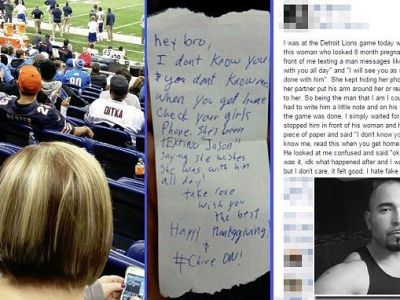 HESTER
DITKA
hey bro,
I dont know you
& you dont know me
When you get home
Check your girls
Phone. She's been
TEXTING "Jason"
Saying she wishes
She was with him
all day!
take care
wish you
the best
Happy thanksgiving!
&
#Chive ON!
I was at the Detroit Lions game today w
this woman who looked 8 month pregna
front of me texting a man messages like
with you all day" and "I will see you as
done with him". She kept hiding her pho
her partner put his arm around her or rea
to her. So being the man that I am I cou
had to write him a little note and on his
the game was done, I simply waited for
stopped him in front of his woman and h
piece of paper and said "I don't know yo
know me, read this when you get home"
He looked at me confused and said "ok
was it, idk what happened after and I wa
but I don't care, it felt good. I hate fake